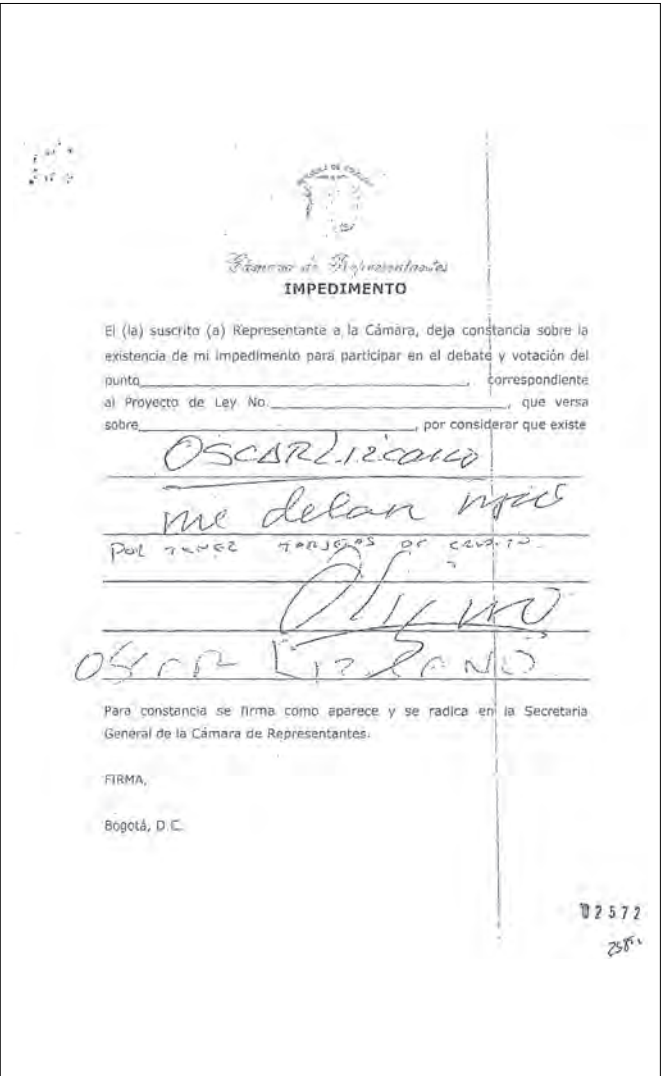 REPUBLICA DE COLOMBIA
Cámara de Representantes
IMPEDIMENTO
El (la) suscrito (a) Representante a la Cámara, deja constancia sobre la
existencia de mi impedimento para participar en el debate y votación del
punto____________________, correspondiente
al Proyecto de Ley No.____________________, que versa
sobre____________________, por considerar que existe
OSCAR Lizcano
me
POR TENER TARJETAS DE CREDITO
OSCAR LIZCANO
Para constancia se firma como aparece y se radica en la Secretaria
General de la Cámara de Representantes.
FIRMA,
Bogotá, D.C.
02572